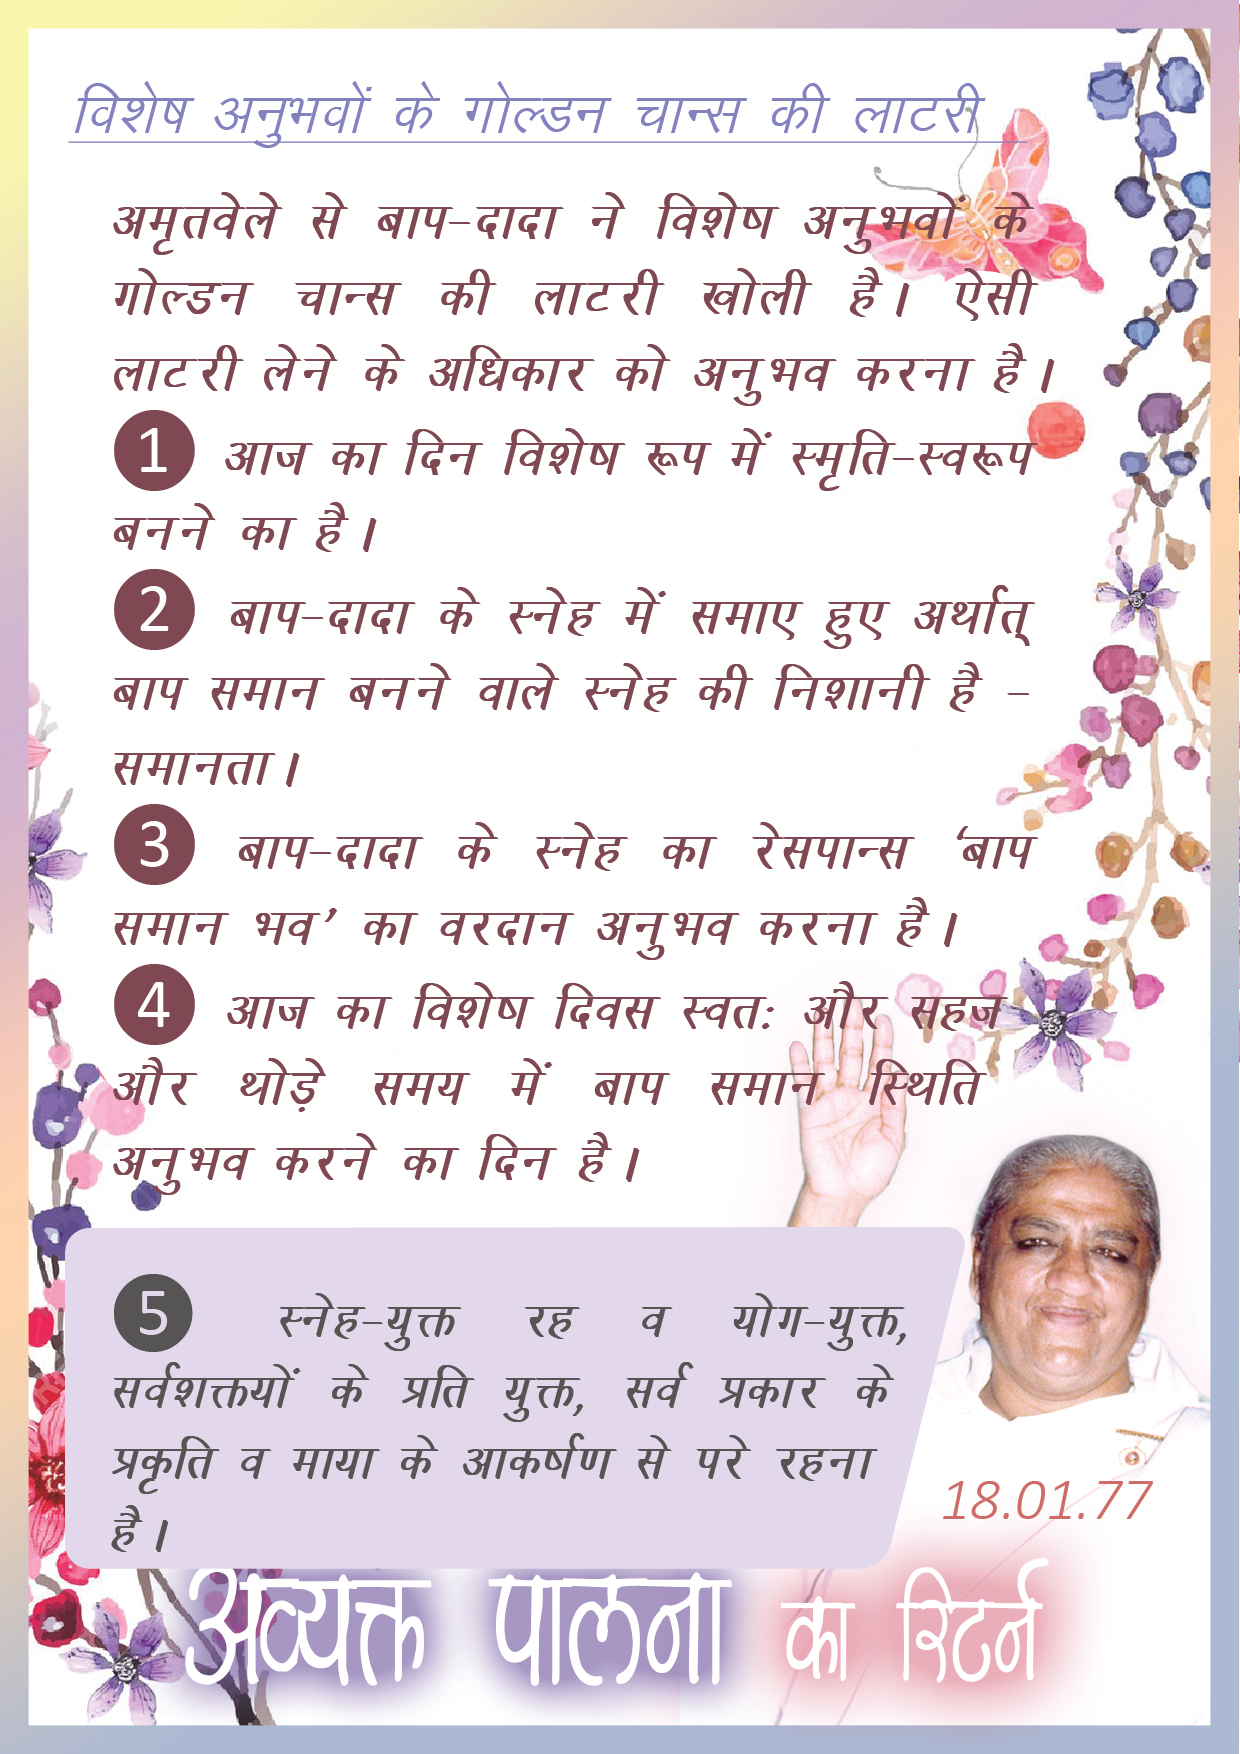 विशेष अनुभवों के गोल्डन चान्स की लाटरी
अमृतवेले से बाप-दादा ने विशेष अनुभवों के
गोल्डन चान्स की लाटरी खोली है। ऐसी
लाटरी लेने के अधिकार को अनुभव करना है।
1 आज का दिन विशेष रूप में स्मृति-स्वरूप
बनने का है।
2 बाप-दादा के स्नेह में समाए हुए अर्थात्
बाप समान बनने वाले स्नेह की निशानी है -
समानता।
3 बाप-दादा के स्नेह का रेसपान्स ‘बाप
समान भव’ का वरदान अनुभव करना है।
4 आज का विशेष दिवस स्वतः और सहज
और थोड़े समय में बाप समान स्थिति
अनुभव करने का दिन है।
5 स्नेह-युक्त रह व योग-युक्त,
सर्वशक्तयों के प्रति युक्त, सर्व प्रकार के
प्रकृति व माया के आकर्षण से परे रहना
है।
18.01.77
अव्यक्त पालना का रिटर्न